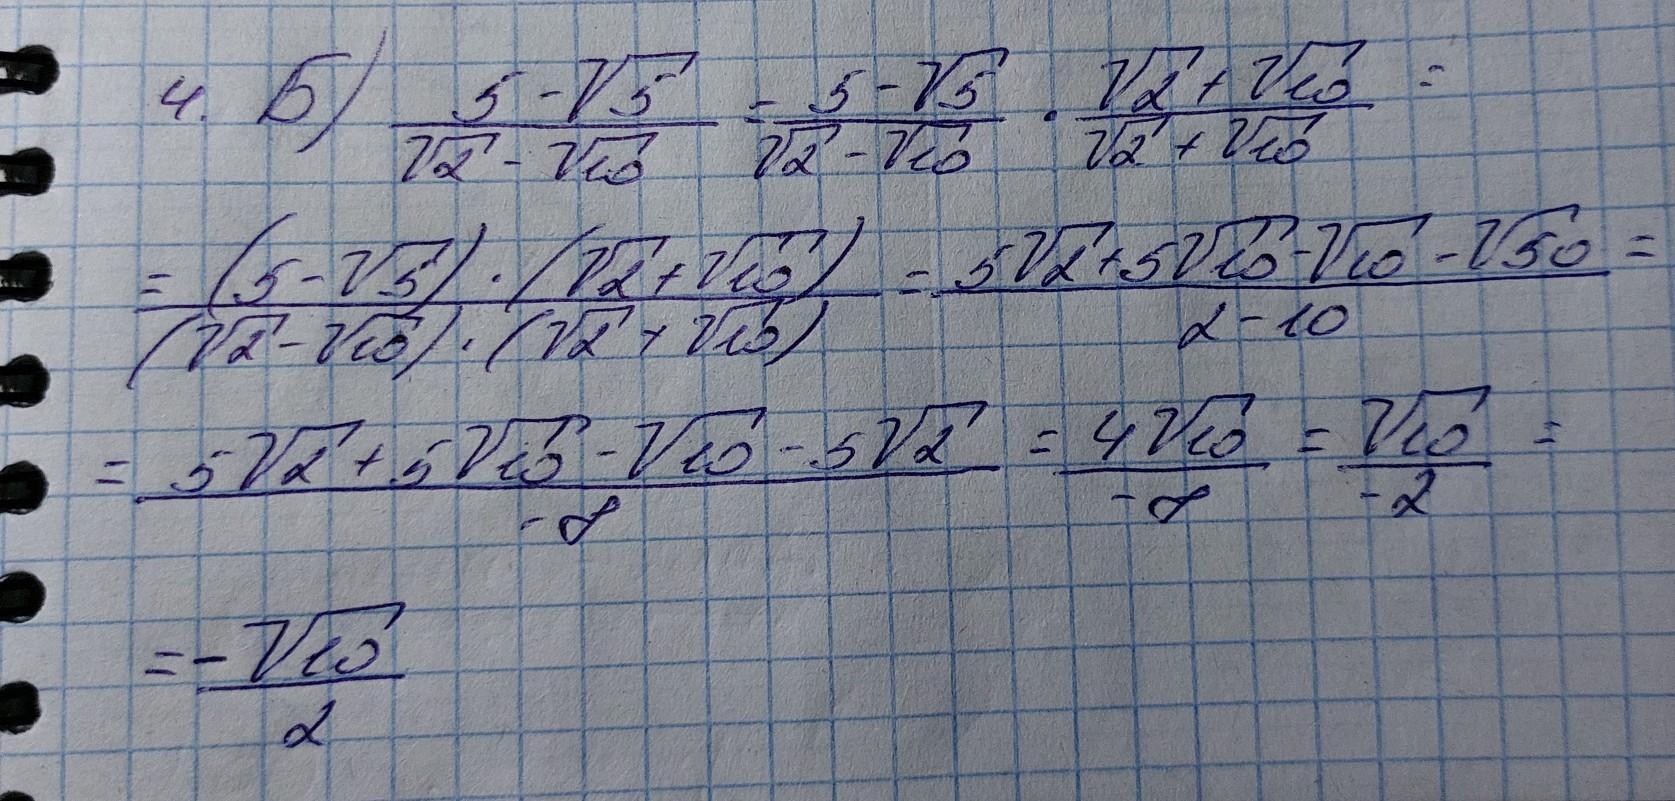 4. Б) (5-√5)/(√2-√10) = (5-√5)/(√2-√10) · (√2+√10)/(√2+√10) =
= ((5-√5)·(√2+√10))/((√2-√10)·(√2+√10)) = (5√2+5√10-√10-√50)/(2-10) =
= (5√2+5√10-√10-5√2)/(-8) = (4√10)/(-8) = (√10)/(-2) =
= -(√10)/2